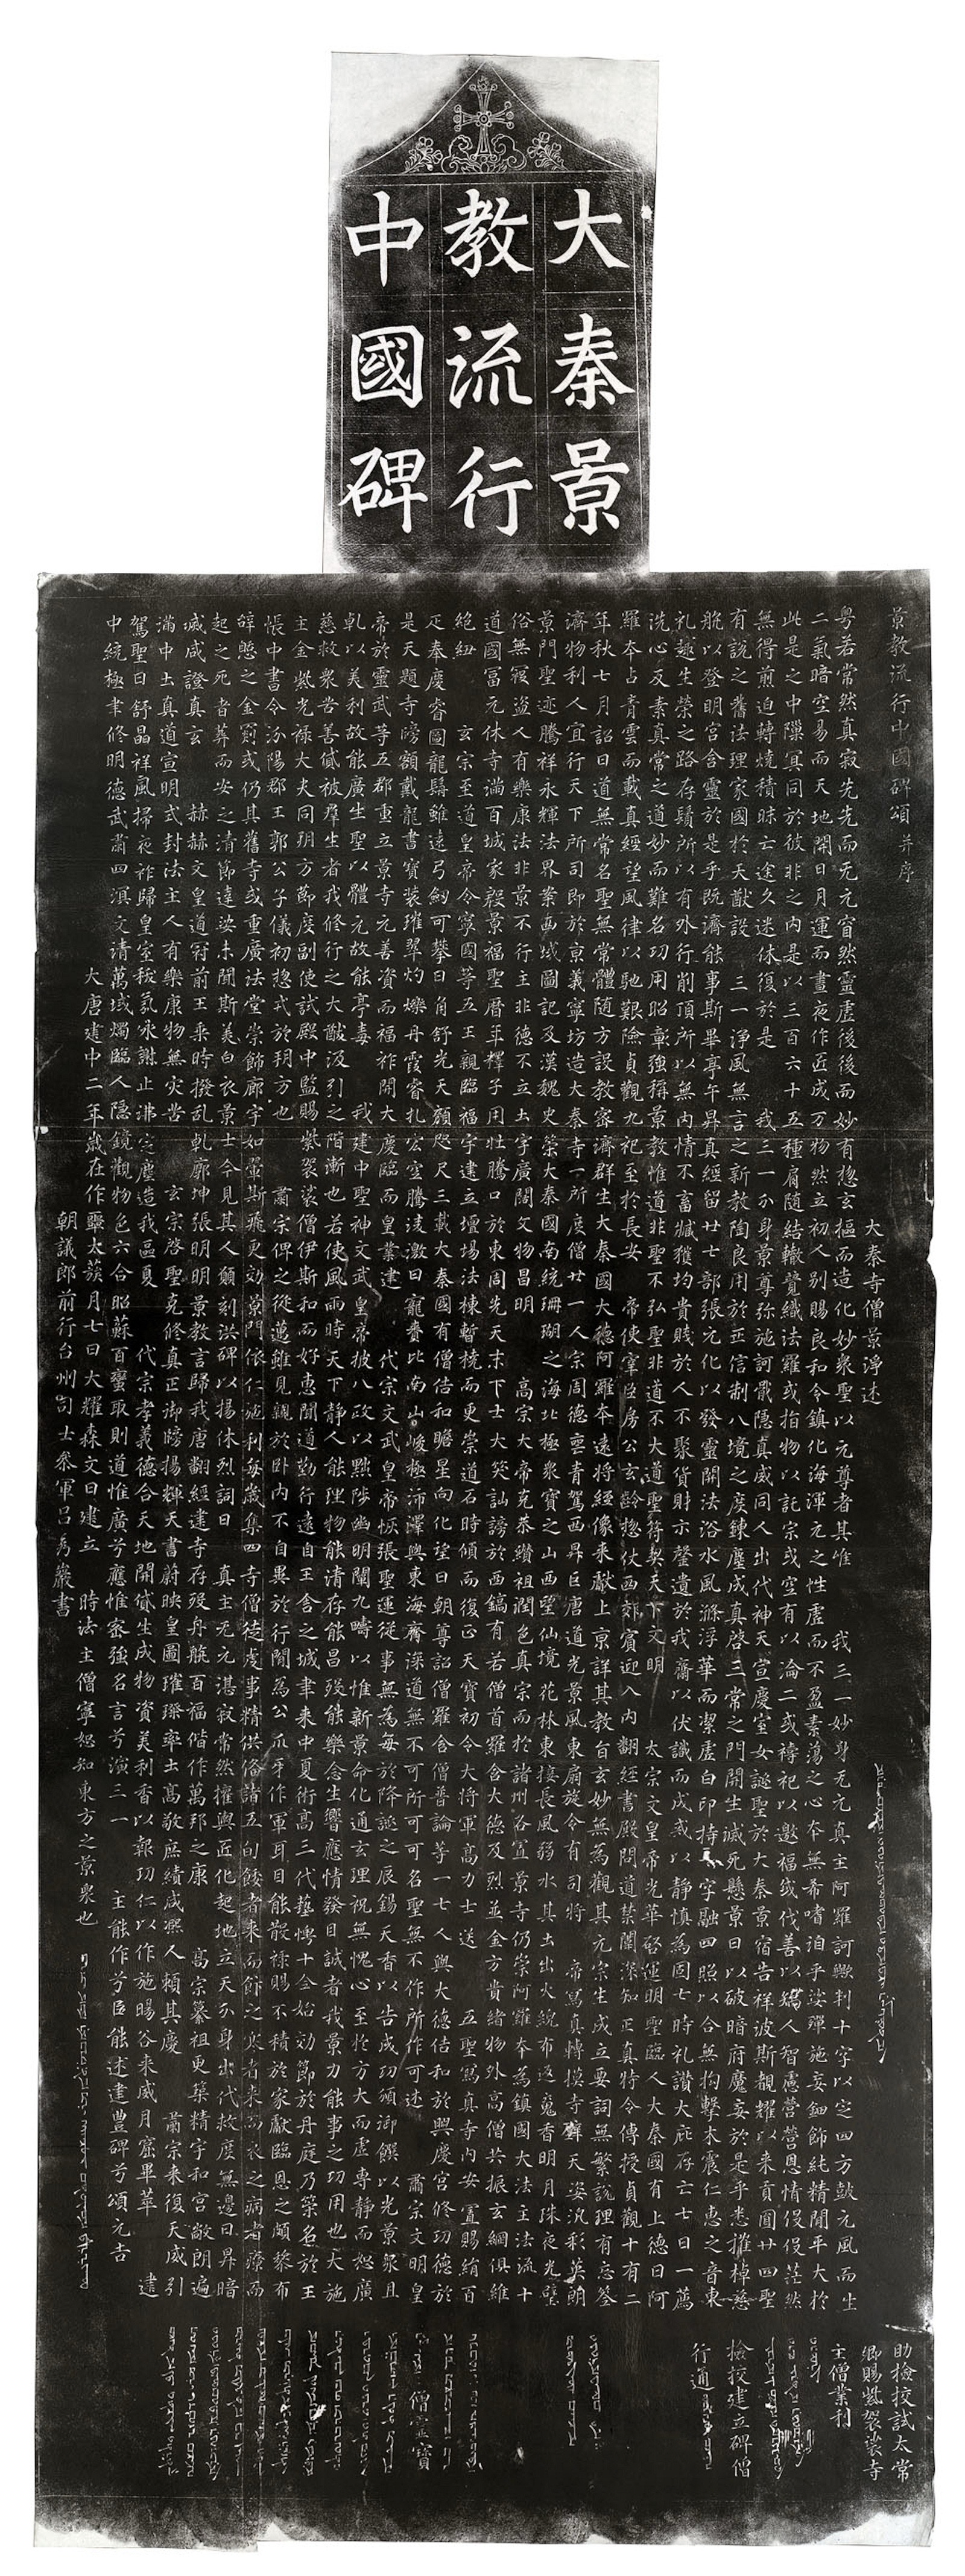 大秦景
教流行
中國碑
景教流行中國碑頌 并序
大秦寺僧景淨述
粵若常然真寂先先而无元窅然靈虛後後而妙有惣玄樞而造化妙眾聖以元尊者其唯 我三一妙身无元真主阿羅訶歟判十字以定四方皷元風而生
二氣暗空易而天地開日月運而晝夜作匠成万物然立初人別賜良和令鎮化海渾元之性虛而不盈素蕩之心本無希嗜洎乎娑殫施妄鈿飾純精閒平大於
此是之中隟冥同於彼非之內是以三百六十五種肩隨結轍競織法羅或指物以託宗或空有以淪二或禱祀以邀福或伐善以矯人智慮營營恩情伇伇茫然
無得煎迫轉燒積昧亡途久迷休復於是 我三一分身景尊弥施訶戢隱真威同人出代神天宣慶室女誕聖於大秦景宿告祥波斯覩耀以来貢圓廿四聖
有說之舊法理家國於大猷設 三一淨風無言之新教陶良用於正信制八境之度鍊塵成真啓三常之門開生滅死懸景日以破暗府魔妄於是乎悉摧棹慈
航以登明宮含靈於是乎既濟能事斯畢亭午昇真經留廿七部張元化以發靈關法浴水風滌浮華而潔虛白印持十字融四照以合無拘擊木震仁惠之音東
礼趣生榮之路存鬚所以有外行削頂所以無內情不畜臧獲均貴賤於人不聚貨財示罄遺於我齋以伏識而成戒以靜慎為固七時礼讚大庇存亡七日一薦
洗心反素真常之道妙而難名功用昭彰強稱景教惟道非聖不弘聖非道不大道聖符契天下文明 太宗文皇帝光華啓運明聖臨人大秦國有上德曰阿
羅本占青雲而載真經望風律以馳艱險貞觀九祀至於長安 帝使宰臣房公玄齡惣仗西郊賓迎入內翻經書殿問道禁闈深知正真特令傳授貞觀十有二
年秋七月詔曰道無常名聖無常體隨方設教密濟群生大秦國大德阿羅本遠將經像来獻上京詳其教旨玄妙無為觀其元宗生成立要詞無繁說理有忘筌
濟物利人宜行天下所司即於京義寧坊造大秦寺一所度僧廿一人宗周德喪青駕西昇巨唐道光景風東扇旋令有司將 帝寫真轉摸寺壁天姿汎彩英朗
景門聖迹騰祥永輝法界案西域圖記及漢魏史策大秦國南統珊瑚之海北極眾寶之山西望仙境花林東接長風弱水其土出火綄布返魂香明月珠夜光璧
俗無寇盜人有樂康法非景不行主非德不立土宇廣闊文物昌明 高宗大帝克恭纘祖潤色真宗而於諸州各置景寺仍崇阿羅本為鎮國大法主法流十
道國冨元休寺滿百城家殷景福聖曆年釋子用壯騰口於東周先天末下士大笑訕謗於西鎬有若僧首羅含大德及烈並金方貴緒物外高僧共振玄綱俱維
絕紐 玄宗至道皇帝令寧國等五王親臨福宇建立壇場法棟暫橈而更崇道石時傾而復正天寶初令大將軍高力士送 五聖寫真寺內安置賜絹百
疋奉慶睿圖龍髯雖遠弓劒可攀日角舒光天顏咫尺三載大秦國有僧佶和瞻星向化望日朝尊詔僧羅含僧普論等一七人與大德佶和於興慶宮修功德於
是天題寺牓額戴龍書寶裝璀翠灼爍丹霞睿扎宏空騰淩激日寵賚比南山峻極沛澤與東海齊深道無不可所可可名聖無不作所作可述 肅宗文明皇
帝於靈武等五郡重立景寺元善資而福祚開大慶臨而皇業建 代宗文武皇帝恢張聖運從事無為每於降誕之辰錫天香以告成功頒御饌以光景眾且
乹以美利故能廣生聖以體元故能亭毒 我建中聖神文武皇帝披八政以黜陟幽明闡九疇以惟新景命化通玄理祝無愧心至於方大而虛專靜而恕廣
慈救眾苦善貸被羣生者我修行之大猷汲引之階漸也若使風雨時天下靜人能理物能清存能昌歿能樂念生響應情發目誠者我景力能事之功用也大施
主金紫光祿大夫同朔方節度副使試殿中監賜紫袈裟僧伊斯和而好惠聞道勤行遠自王舍之城聿来中夏術高三代藝博十全始効節於丹庭乃策名於王
帳中書令汾陽郡王郭公子儀初惣戎於朔方也 肅宗俾之從邁雖見親於卧內不自異於行間為公爪牙作軍耳目能散祿賜不積於家獻臨恩之頗黎布
辝憩之金罽或仍其舊寺或重廣法堂崇飾廊宇如翬斯飛更効景門依仁施利每歲集四寺僧徒虔事精供俻諸五旬餧者来而飰之寒者来而衣之病者療而
起之死者葬而安之清節達娑未聞斯美白衣景士今見其人願刻洪碑以揚休烈詞曰 真主无元湛寂常然權輿匠化起地立天分身出代救度無邊日昇暗
滅咸證真玄 赫赫文皇道冠前王乘時撥乱乹廓坤張明明景教言歸我唐翻經建寺存歿舟航百福偕作萬邦之康 高宗纂祖更築精宇和宮敞朗遍
滿中土真道宣明式封法主人有樂康物無灾苦 玄宗啓聖克修真正御牓揚輝天書蔚映皇圖璀璨率土高敬庶績咸熙人賴其慶 肅宗来復天威引
駕聖日舒晶祥風掃夜祚歸皇室祆氛永謝止沸定塵造我區夏 代宗孝義德合天地開貸生成物資美利香以報功仁以作施暘谷来威月窟畢萃 建
中統極聿修明德武肅四溟文清萬域燭臨人隱鏡觀物色六合昭蘇百蠻取則道惟廣兮應惟密強名言兮演三一 主能作兮臣能述建豐碑兮頌元吉
大唐建中二年歲在作噩太蔟月七日大耀森文日建立 時法主僧寧恕知東方之景眾也
朝議郎前行台州司士叅軍呂秀巖書
助檢挍試太常
卿賜紫袈裟寺
主僧業利
檢挍建立碑僧
行通
僧靈寶